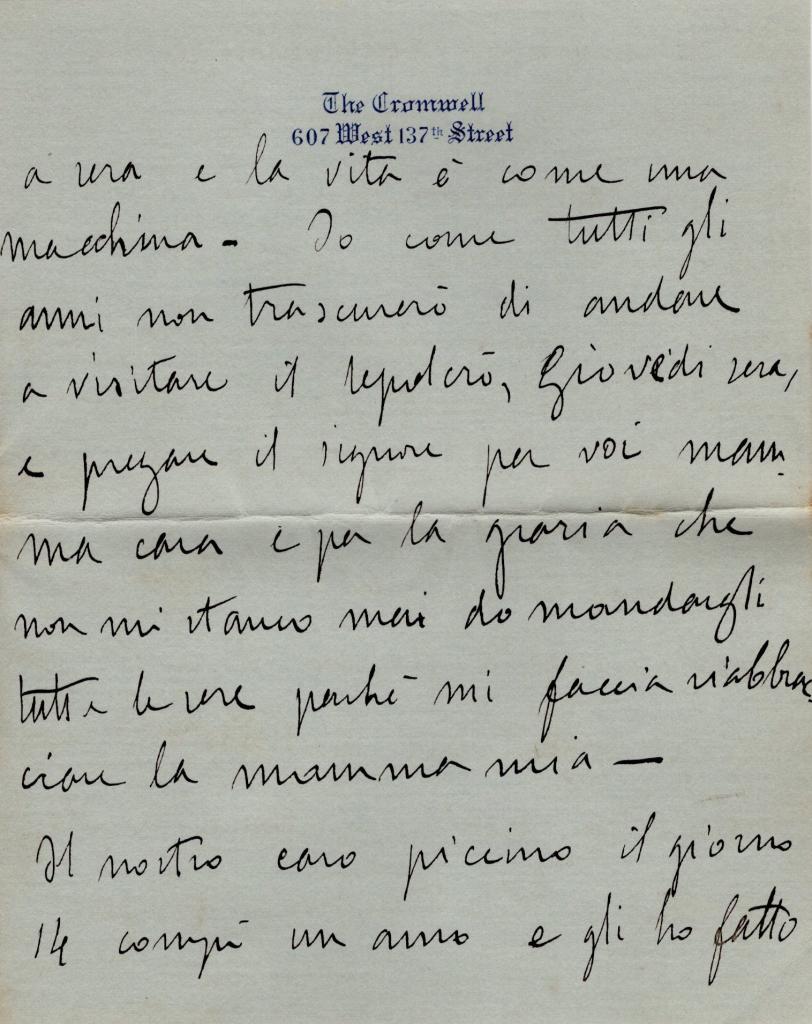 The Cromwell
607 West 137th Street
a sera e la vita è come una
macchina - Io come tutti gli
anni non trascurerò di andare
a visitare il sepolcro, Giovedì sera,
e pregare il signore per voi mam-
ma cara e per la grazia che
non mi stanco mai do mandargli
tutte le sere perchè mi faccia riabbra-
ciare la mamma mia —
Il nostro caro piccino il giorno
14 compì un anno e gli ho fatto